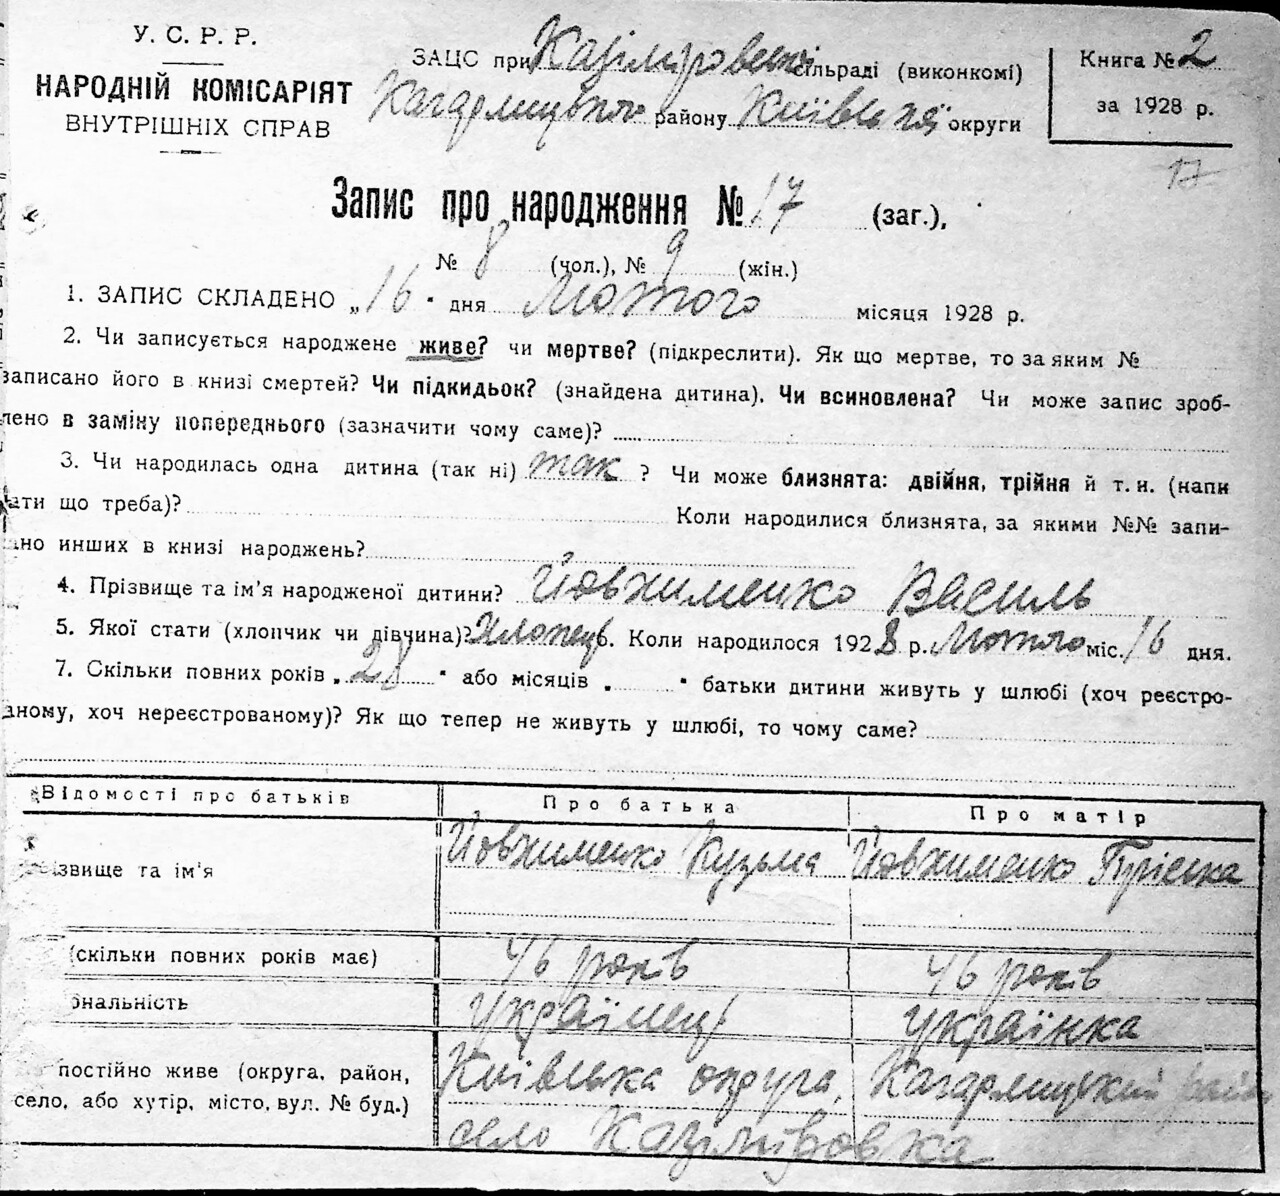 У. С. Р. Р.
НАРОДНІЙ КОМІСАРІЯТ
ВНУТРІШНІХ СПРАВ
ЗАЦС при Казіміровській сільраді (виконкомі)
Кагарлицького району Київської округи
Книга № 2
за 1928 р.
17
Запис про народження № 17 (заг.),
№ 8 (чол.), № 9 (жін.)
1. ЗАПИС СКЛАДЕНО „16" дня Лютого місяця 1928 р.
2. Чи записується народжене живе? чи мертве? (підкреслити). Як що мертве, то за яким №
записано його в книзі смертей? Чи підкидьок? (знайдена дитина). Чи всиновлена? Чи може запис зроб-
лено в заміну попереднього (зазначити чому саме)?
3. Чи народилась одна дитина (так ні) так ? Чи може близнята: двійня, трійня й т. и. (напи
ати що треба)? Коли народилися близнята, за якими №№ запи-
ано инших в книзі народжень?
4. Прізвище та ім'я народженої дитини? Йовхименко Василь
5. Якої стати (хлопчик чи дівчина)? Хлопець 6. Коли народилося 1928 р. Лютого міс. 16 дня.
7. Скільки повних років „28" або місяців „ " батьки дитини живуть у шлюбі (хоч реєстро-
аному, хоч нереєстрованому)? Як що тепер не живуть у шлюбі, то чому саме?
Відомості про батьків Про батька Про матір
ізвище та ім'я Йовхименко Кузьма Йовхименко
(скільки повних років має) 46 років 46 років
ональність українець українка
постійно живе (округа, район, Київська округа, Кагарлицький район
село, або хутір, місто, вул. № буд.) село Казіміровка